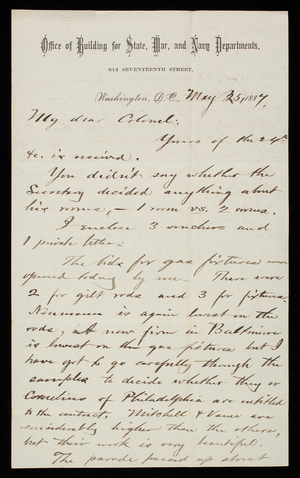 Office of Building for State, War, and Navy Departments,
612 SEVENTEENTH STREET,
Washington, D.C., May 25, 1887.
My dear Colonel:
Yours of the 24th
&c. is received.
You didn't say whether the
Secretary decided anything about
his rooms, – 1 room vs. 2 rooms.
I enclose 3 vouchers and
1 private letter.
The bids for gas fixtures were
opened today by me. There were
2 for gilt rods and 3 for fixtures.
Neumann is again lowest on the
rods, A new firm in Baltimore
is lowest on the gas fixtures but I
have got to go carefully through the
samples to decide whether they or
Cornelius of Philadelphia are entitled
to the contract. Mitchell & Vance are
considerably higher than the others,
but their work is very beautiful.
The parade passed up about